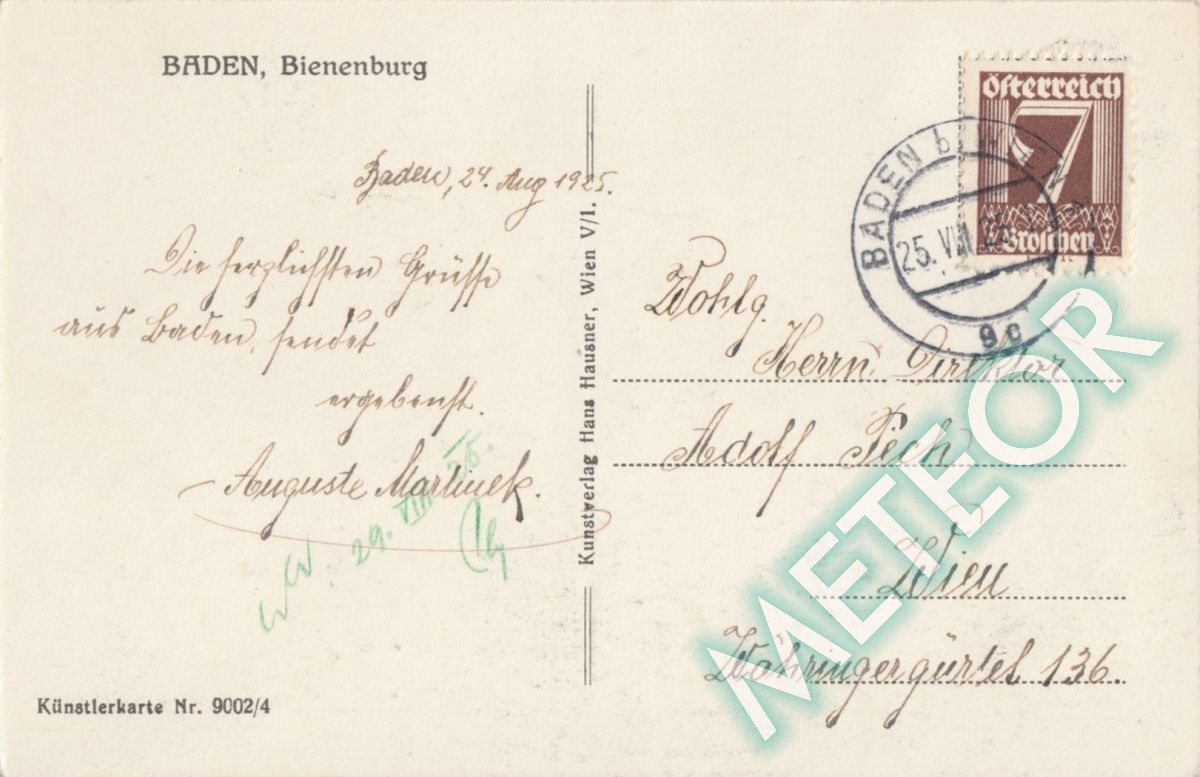 BADEN, Bienenburg
Baden, 24. Aug 1925.
Die herzlichsten Grüsse
aus Baden, sendet
ergebenst.
Auguste Martinek.
WW. 29. VIII
Künstlerkarte Nr. 9002/4
Kunstverlag Hans Hausner, Wien V/1.
Österreich
7
Groschen
BADEN b. WIEN
25. VIII. 25
9c
Wohlg.
Herrn Direktor
Adolf Pech
Wien
Währingergürtel 136.
METEOR